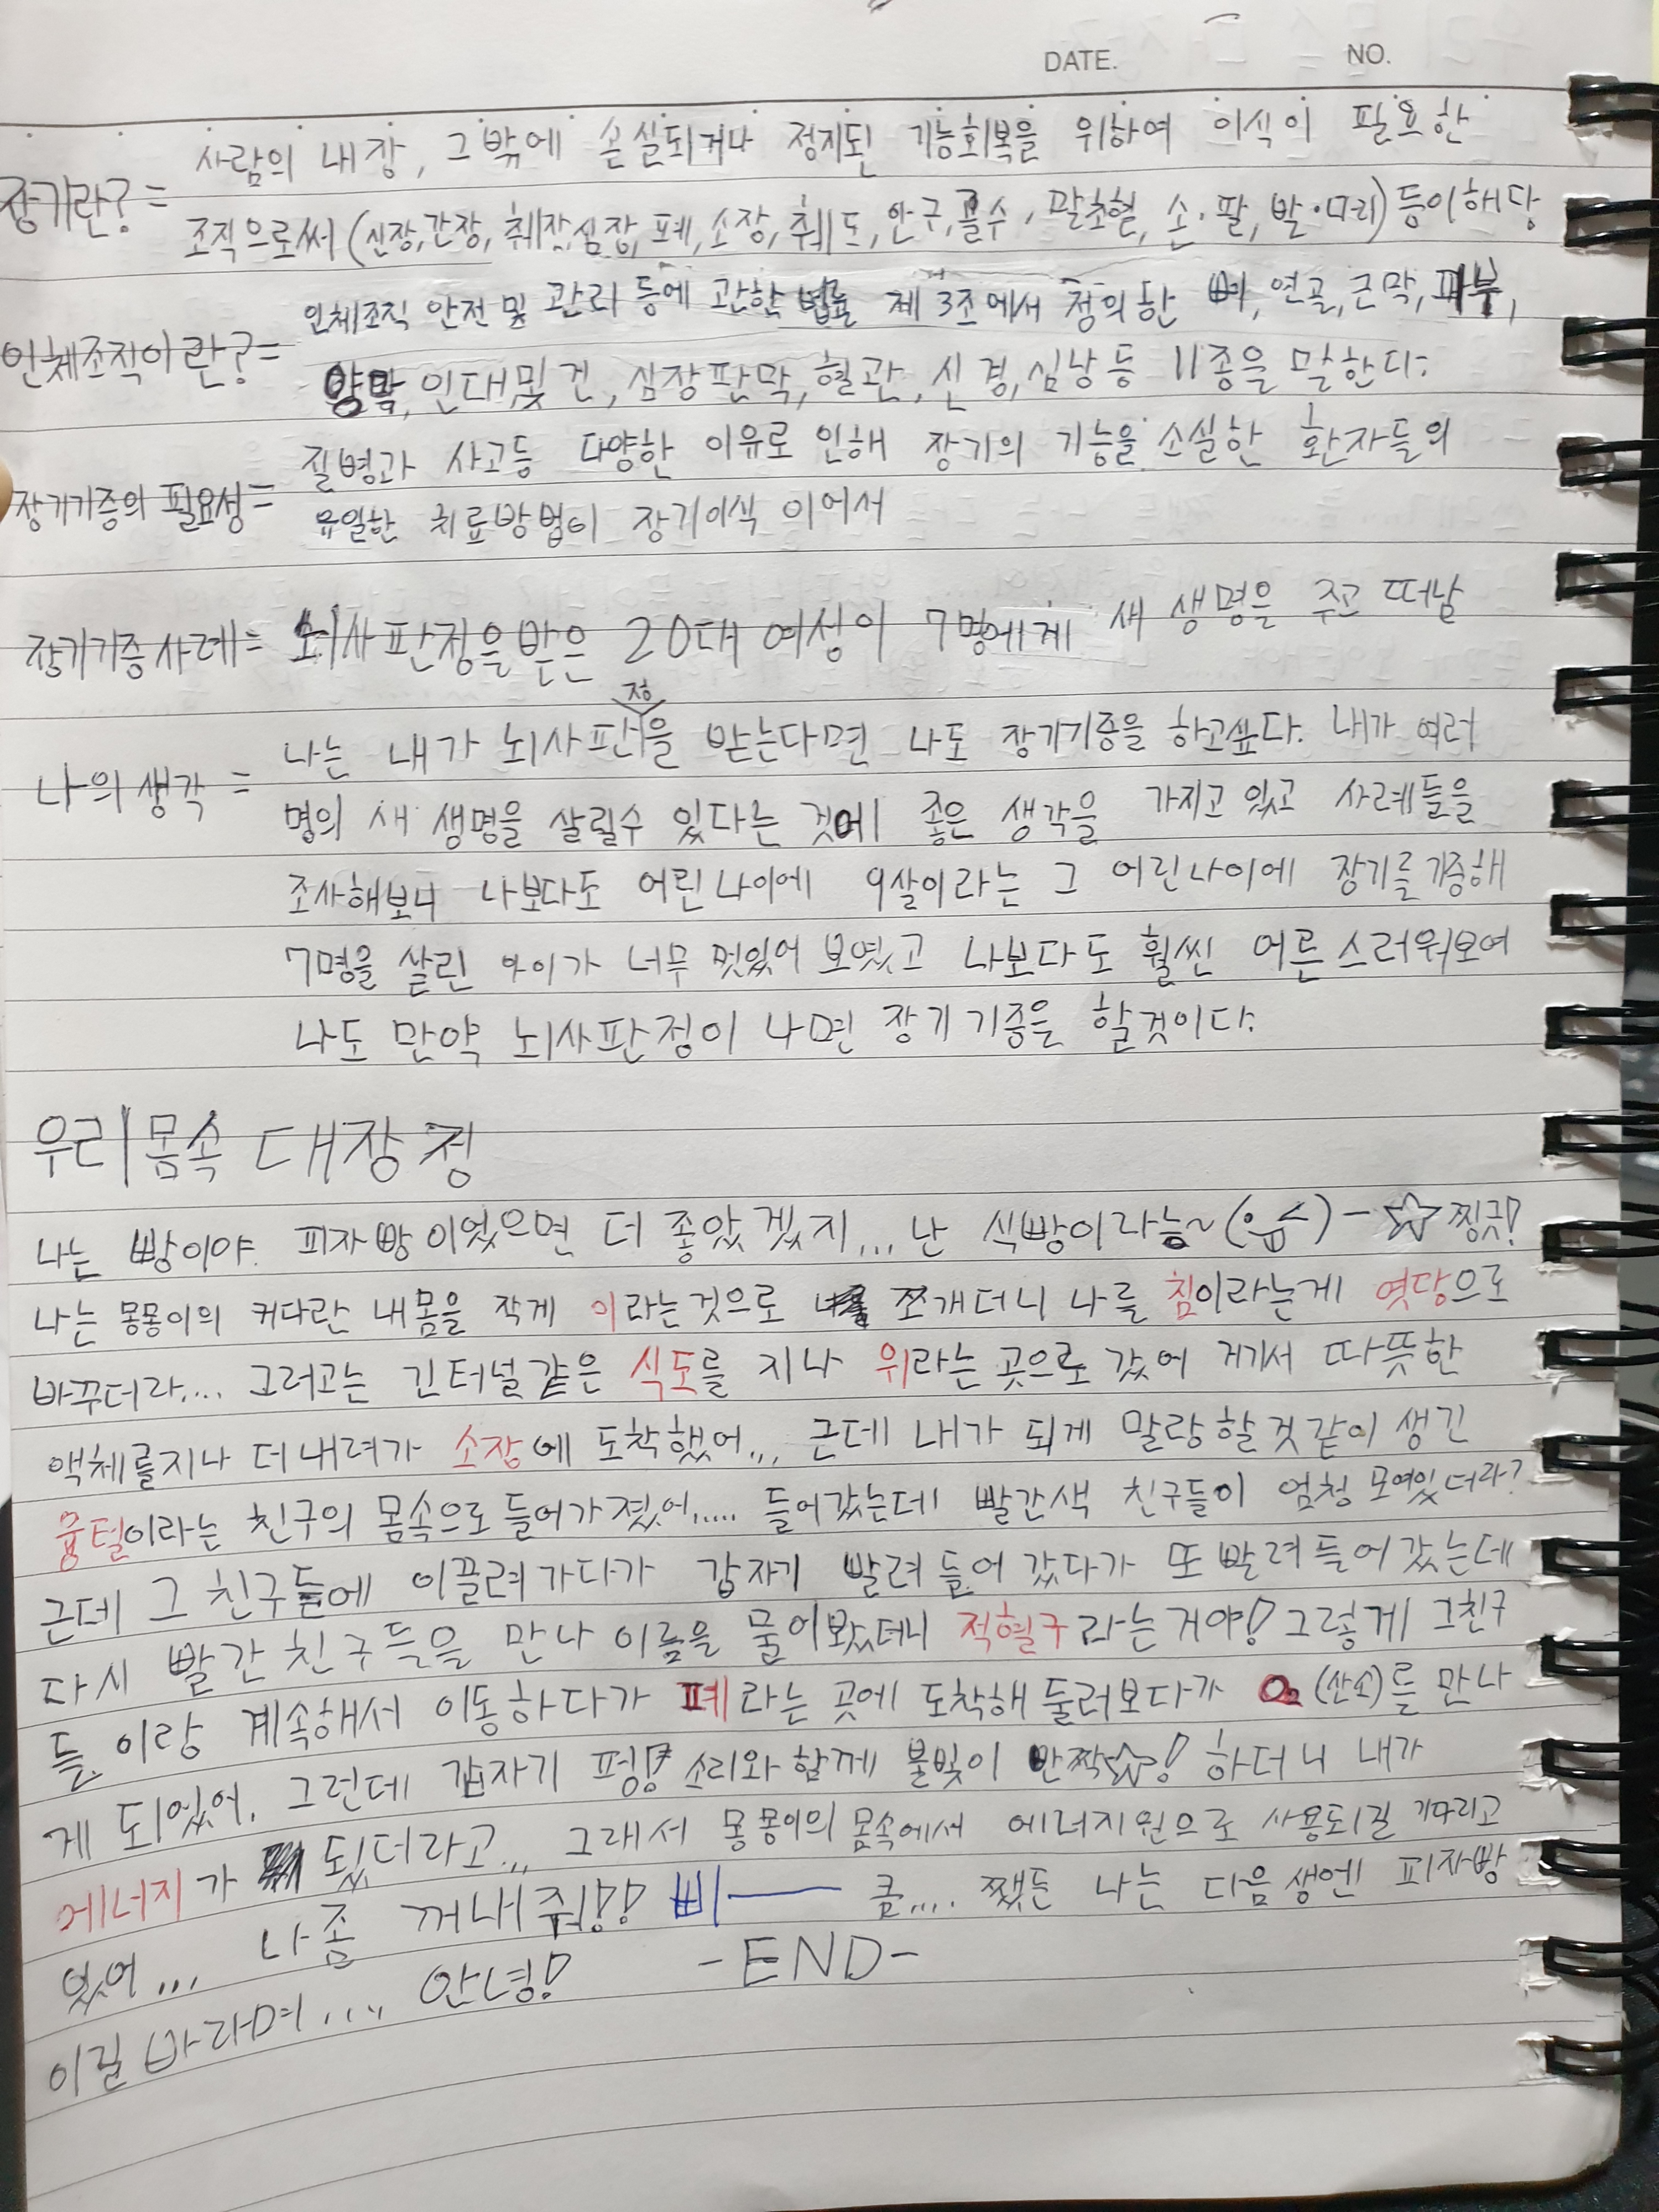 DATE. NO.
장기란? = 사람의 내장, 그밖에 손실되거나 정지된 기능회복을 위하여 이식이 필요한
조직으로써 (신장, 간장, 췌장, 심장, 폐, 소장, 췌도, 안구, 골수, 말초혈, 손·팔, 발·다리) 등이 해당
인체조직이란? = 인체조직 안전 및 관리 등에 관한 법률 제 3조에서 정의한 뼈, 연골, 근막, 피부,
양막, 인대 및 건, 심장판막, 혈관, 신경, 심낭 등 11종을 말한다.
장기기증의 필요성 = 질병과 사고등 다양한 이유로 인해 장기의 기능을 소실한 환자들의
유일한 치료방법이 장기이식 이어서
장기기증 사례 = 뇌사판정을 받은 20대 여성이 7명에게 새 생명을 주고 떠남
나의 생각 = 나는 내가 뇌사판정을 받는다면 나도 장기기증을 하고싶다. 내가 여러
명의 새 생명을 살릴수 있다는 것에 좋은 생각을 가지고 있고 사례들을
조사해보니 나보다도 어린나이에 9살이라는 그 어린나이에 장기를 기증해
7명을 살린 아이가 너무 멋있어 보였고 나보다도 훨씬 어른스러워보여
나도 만약 뇌사판정이 나면 장기기증을 할것이다.
우리몸속 대장정
나는 빵이야. 피자빵이었으면 더 좋았겠지... 난 식빵이라능~ ☆ 찡긋!
나는 몽몽이의 커다란 내몸을 작게 이라는것으로 쪼개더니 나를 침이라는게 엿당으로
바꾸더라.... 그러고는 긴터널같은 식도를 지나 위라는 곳으로 갔어 거기서 따뜻한
액체를지나 더 내려가 소장에 도착했어... 근데 내가 되게 말랑할것같이 생긴
융털이라는 친구의 몸속으로 들어가졌어..... 들어갔는데 빨간색 친구들이 엄청 모여있더라?
근데 그 친구들에 이끌려가다가 갑자기 빨려 들어 갔다가 또 빨려 들어 갔는데
다시 빨간 친구들을 만나 이름을 물어봤더니 적혈구라는거야! 그렇게 그친구
들 이랑 계속해서 이동하다가 폐라는 곳에 도착해 둘러보다가 O₂ (산소)를 만나
게 되었어. 그런데 갑자기 펑! 소리와 함께 불빛이 반짝☆! 하더니 내가
에너지가 됬더라고... 그래서 몽몽이의 몸속에서 에너지원으로 사용되길 기다리고
있어... 나좀 꺼내줘!! 삐── 큼.... 쨌든 나는 다음생엔 피자빵
이길 바라며.... 안녕! -END-